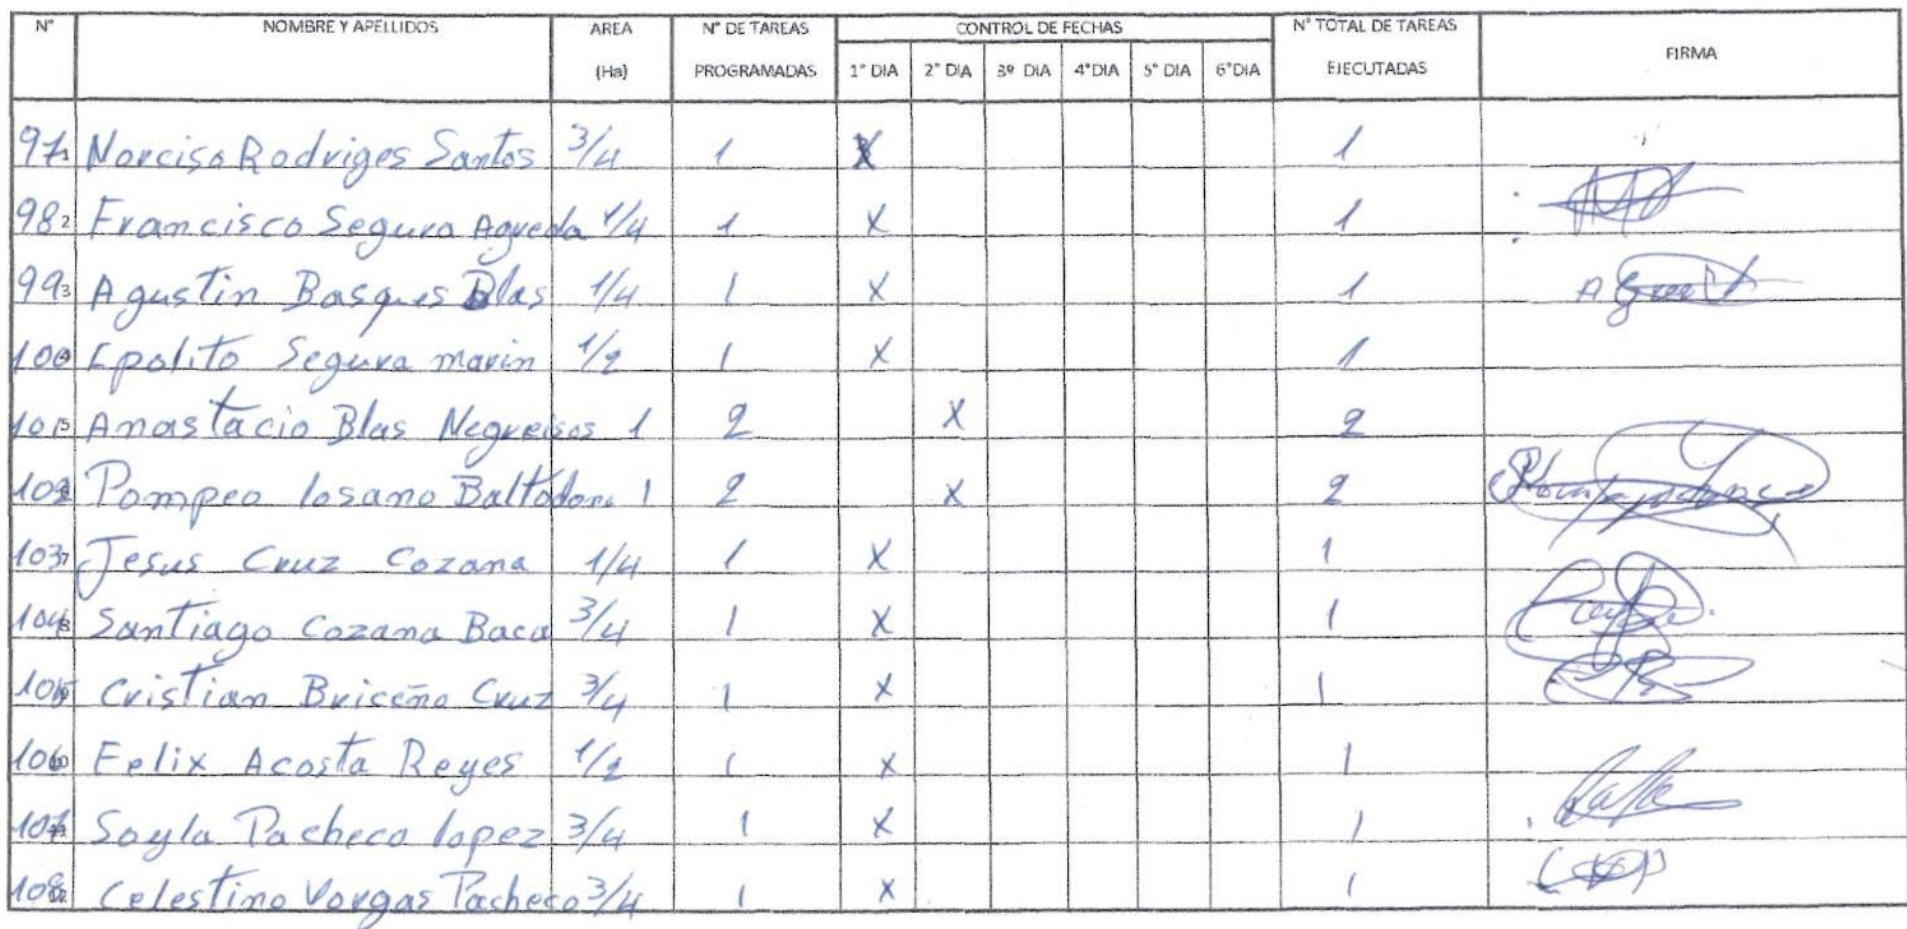 N° NOMBRE Y APELLIDOS AREA (Ha) N° DE TAREAS PROGRAMADAS CONTROL DE FECHAS N° TOTAL DE TAREAS EJECUTADAS FIRMA
1° DIA 2° DIA 3º DIA 4°DIA 5° DIA 6°DIA
97 1 Narciso Rodriges Santos 3/4 1 X 1
98 2 Francisco Segura Agreda 1/4 1 X 1
99 3 Agustin Basques Blas 1/4 1 X 1
100 4 Epolito Segura marin 1/2 1 X 1
101 5 Anastacio Blas Negreiros 1 2 X 2
102 6 Pompeo losano Baltodano 1 2 X 2
103 7 Jesus Cruz Cozana 1/4 1 X 1
104 8 Santiago Cozana Baca 3/4 1 X 1
105 9 Cristian Briceño Cruz 3/4 1 X 1
106 10 Felix Acosta Reyes 1/2 1 X 1
107 11 Soyla Pacheco lopez 3/4 1 X 1
108 12 Celestino Vargas Pacheco 3/4 1 X 1